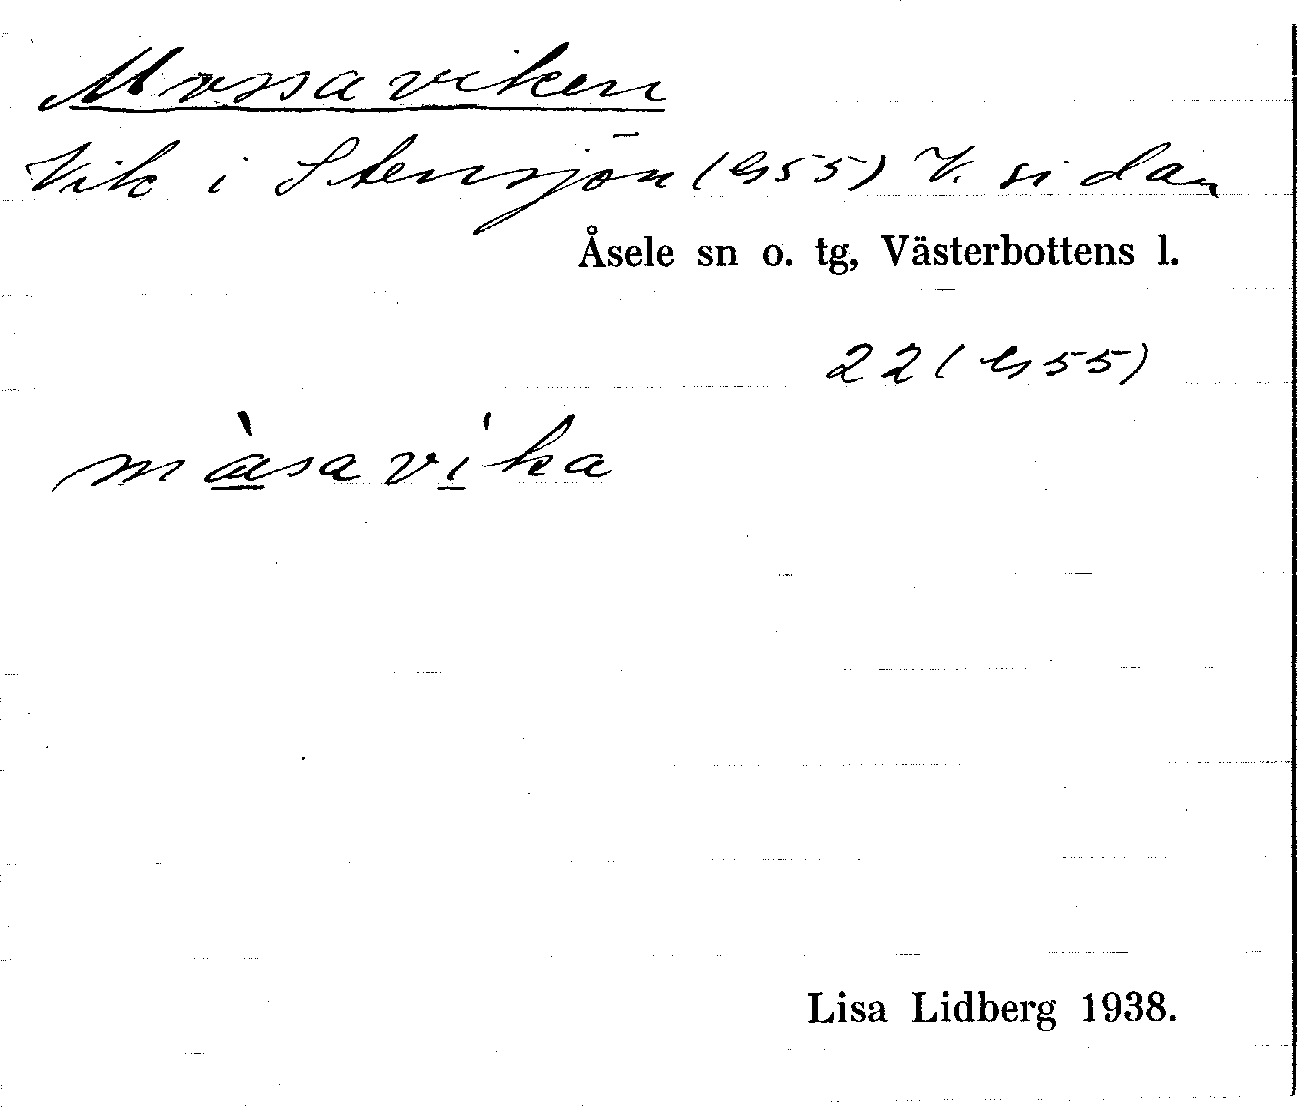 Mossaviken
Vik i Stensjön (G55) V. sidan
Åsele sn o. tg, Västerbottens l.
22 (G55)
mɑ̀savi̍ka
Lisa Lidberg 1938.